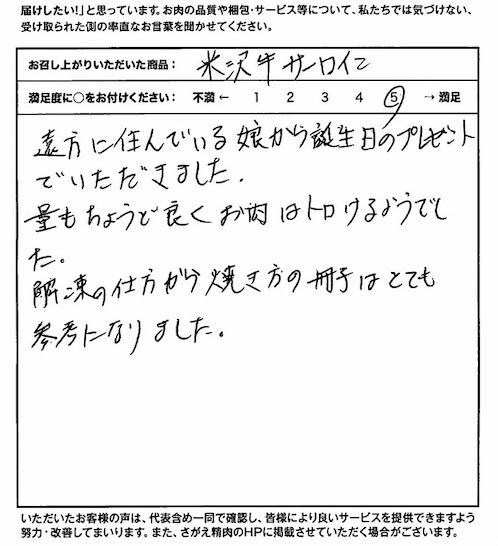 届けしたい!」と思っています。お肉の品質や梱包・サービス等について、私たちでは気づけない、
受け取られた側の率直なお言葉を聞かせてください。
お召し上がりいただいた商品: 米沢牛サーロイン
満足度に○をお付けください: 不満 ← 1 2 3 4 5 → 満足
遠方に住んでいる娘から誕生日のプレゼント
でいただきました.
量もちょうど良くお肉はトロけるようでし
た。
解凍の仕方から焼き方の冊子はとても
参考になりました。
いただいたお客様の声は、代表含め一同で確認し、皆様により良いサービスを提供できますよう
努力・改善してまいります。また、さがえ精肉のHPに掲載させていただく場合がございます。